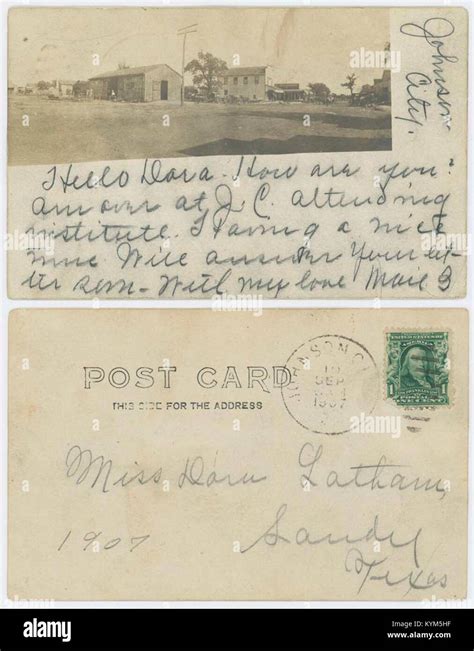 Johnson
City.
Hello Dora. How are you?
am over at J. C. attending
institute. Having a nice
time Will answer your let-
ter soon - With my love Maie B
POST CARD
THIS SIDE FOR THE ADDRESS
JOHNSON C
10
SEP
1907
Miss Dora Latham,
1907
Sandy
Texas
alamy
Image ID: KYM5HF
www.alamy.com